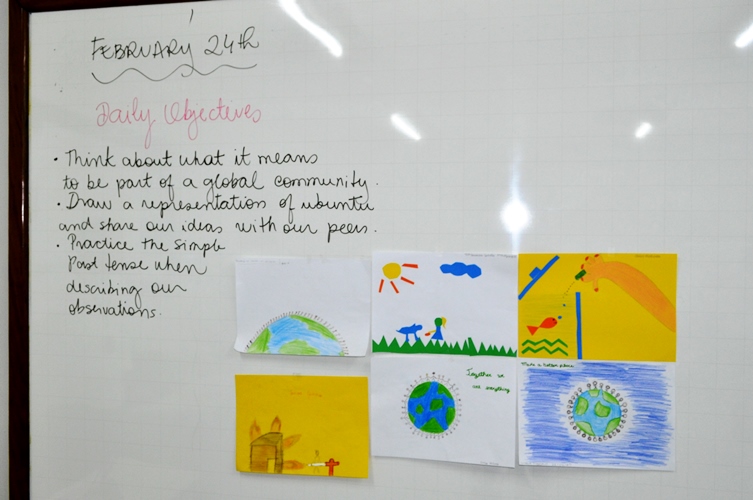 FEBRUARY 24th
Daily Objectives
• Think about what it means
to be part of a global community.
• Draw a representation of ubuntu
and share our ideas with our peers.
• Practice the simple
Past tense when
describing our
observations.
Together we
are everything